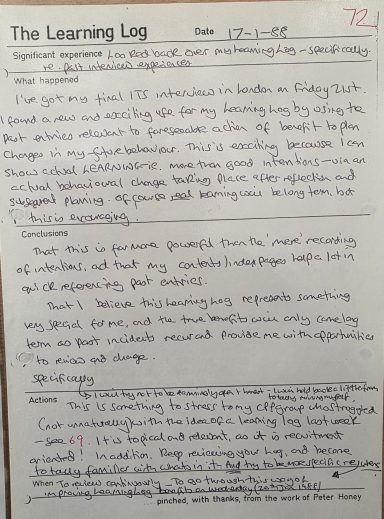 72
The Learning Log Date 17-1-88
Significant experience Looked back over my learning log - specifically
re. past interviews experiences
What happened
I've got my final ITS interview in London on Friday 21st.
I found a new and exciting use for my learning log by using the
past entries relevant to foreseeable action of benefit to plan
changes in my future behaviour. This is exciting because I can
show actual LEARNING - ie. more than good intentions - via an
actual behavioural change taking place after reflection and
subsequent planning. Of course real learning will be long term but
this is encouraging.
Conclusions
That this is far more powerful than the 'mere' recording
of intentions, and that my contents/index pages help a lot in
quick referencing past entries.
That I believe this learning log represents something
very special for me, and the true benefits will only come long
term as past incidents recur and provide me with opportunities
to review and change.
specifically
I will try not to be openly honest - I will hold back a little
Actions This is something to stress to my CPP group who struggled
(not unnaturally) with the idea of a learning log last week
- see 69. It is topical and relevant, as it is recruitment
oriented! In addition, keep reviewing your log, and become
totally familiar with what's in it. And try to be more specific re
When To review continuously - To go through this way of
improving learning log benefits on Wednesday
... pinched, with thanks, from the work of Peter Honey